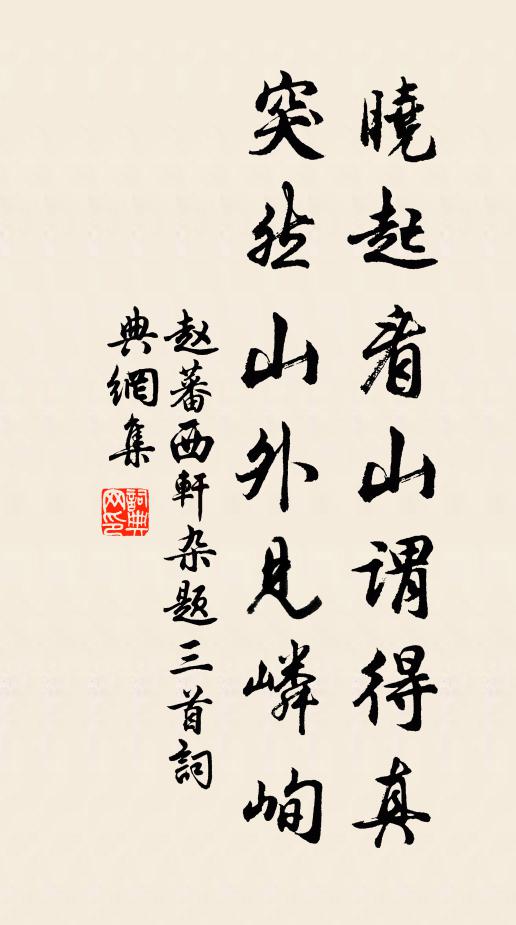 曉起看山謂得真
突然山外見嶙峋
赵蕃西軒杂题三首詞
典網集
詞典網印